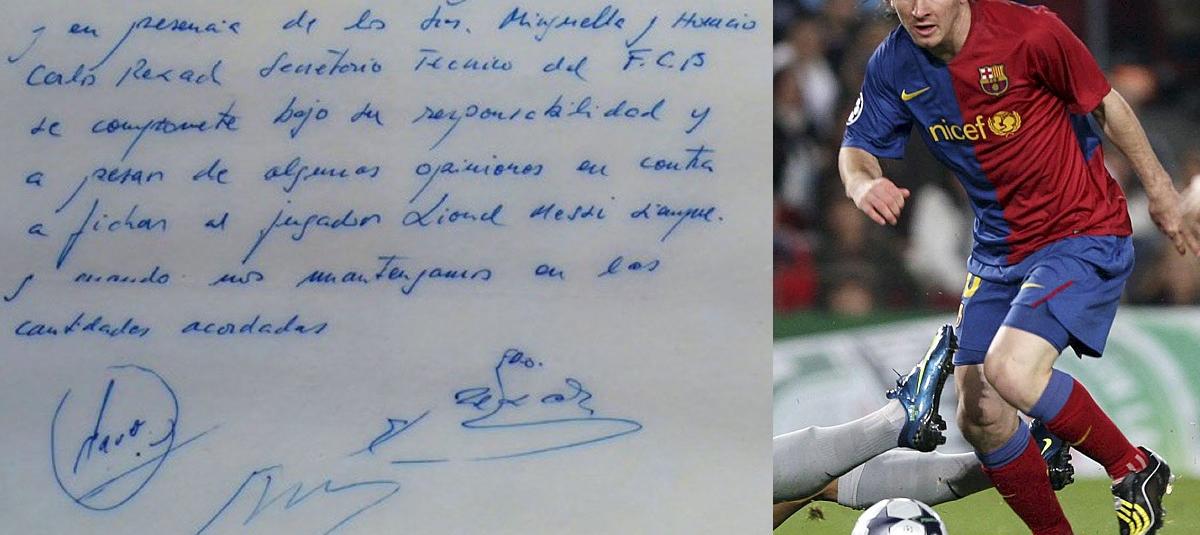 y en presencia de los Srs. Minguella y Horacio
Carlos Rexach Secretario Técnico del F.C.B
se compromete bajo su responsabilidad y
a pesar de algunas opiniones en contra
a fichar al jugador Lionel Messi siempre
y cuando nos mantengamos en las
cantidades acordadas
unicef